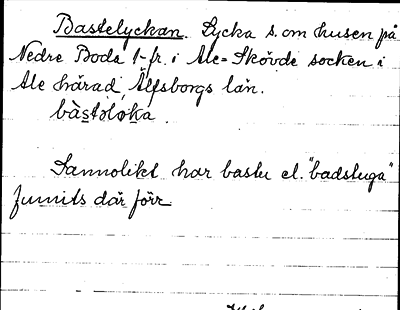 Bastelyckan. Lycka s. om husen på
Nedre Boda 1-fr. i Ale=Skövde socken i
Ale härad, Älfsborgs län.
bàstöl
Sannolikt har bastu el. "badstuga"
funnits där förr